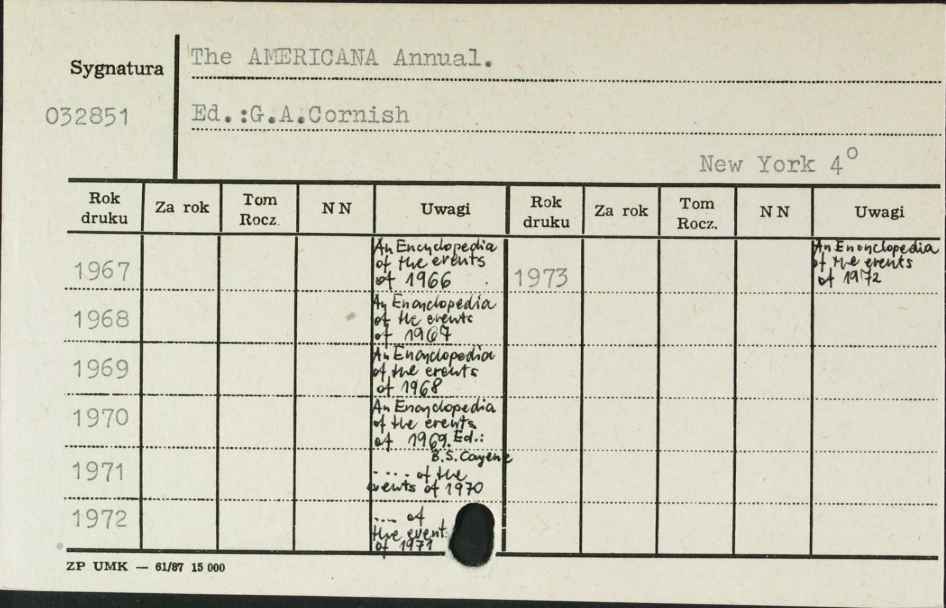 The AMERICANA Annual.
Sygnatura
032851
Ed.:G.A.Cornish
New York 4°
Rok druku Za rok Tom Rocz. NN Uwagi Rok druku Za rok Tom Rocz. NN Uwagi
1967 An Encyclopedia
of the events
of 1966
1973 An Encyclopedia
of the events
of 1972
1968 An Encyclopedia
of the events
of 1967
1969 An Encyclopedia
of the events
of 1968
1970 An Encyclopedia
of the events
of 1969. Ed.:
B.S. Cayene
1971 .... of the
events of 1970
1972 ... of
the event
of 1971
ZP UMK — 61/87 15 000